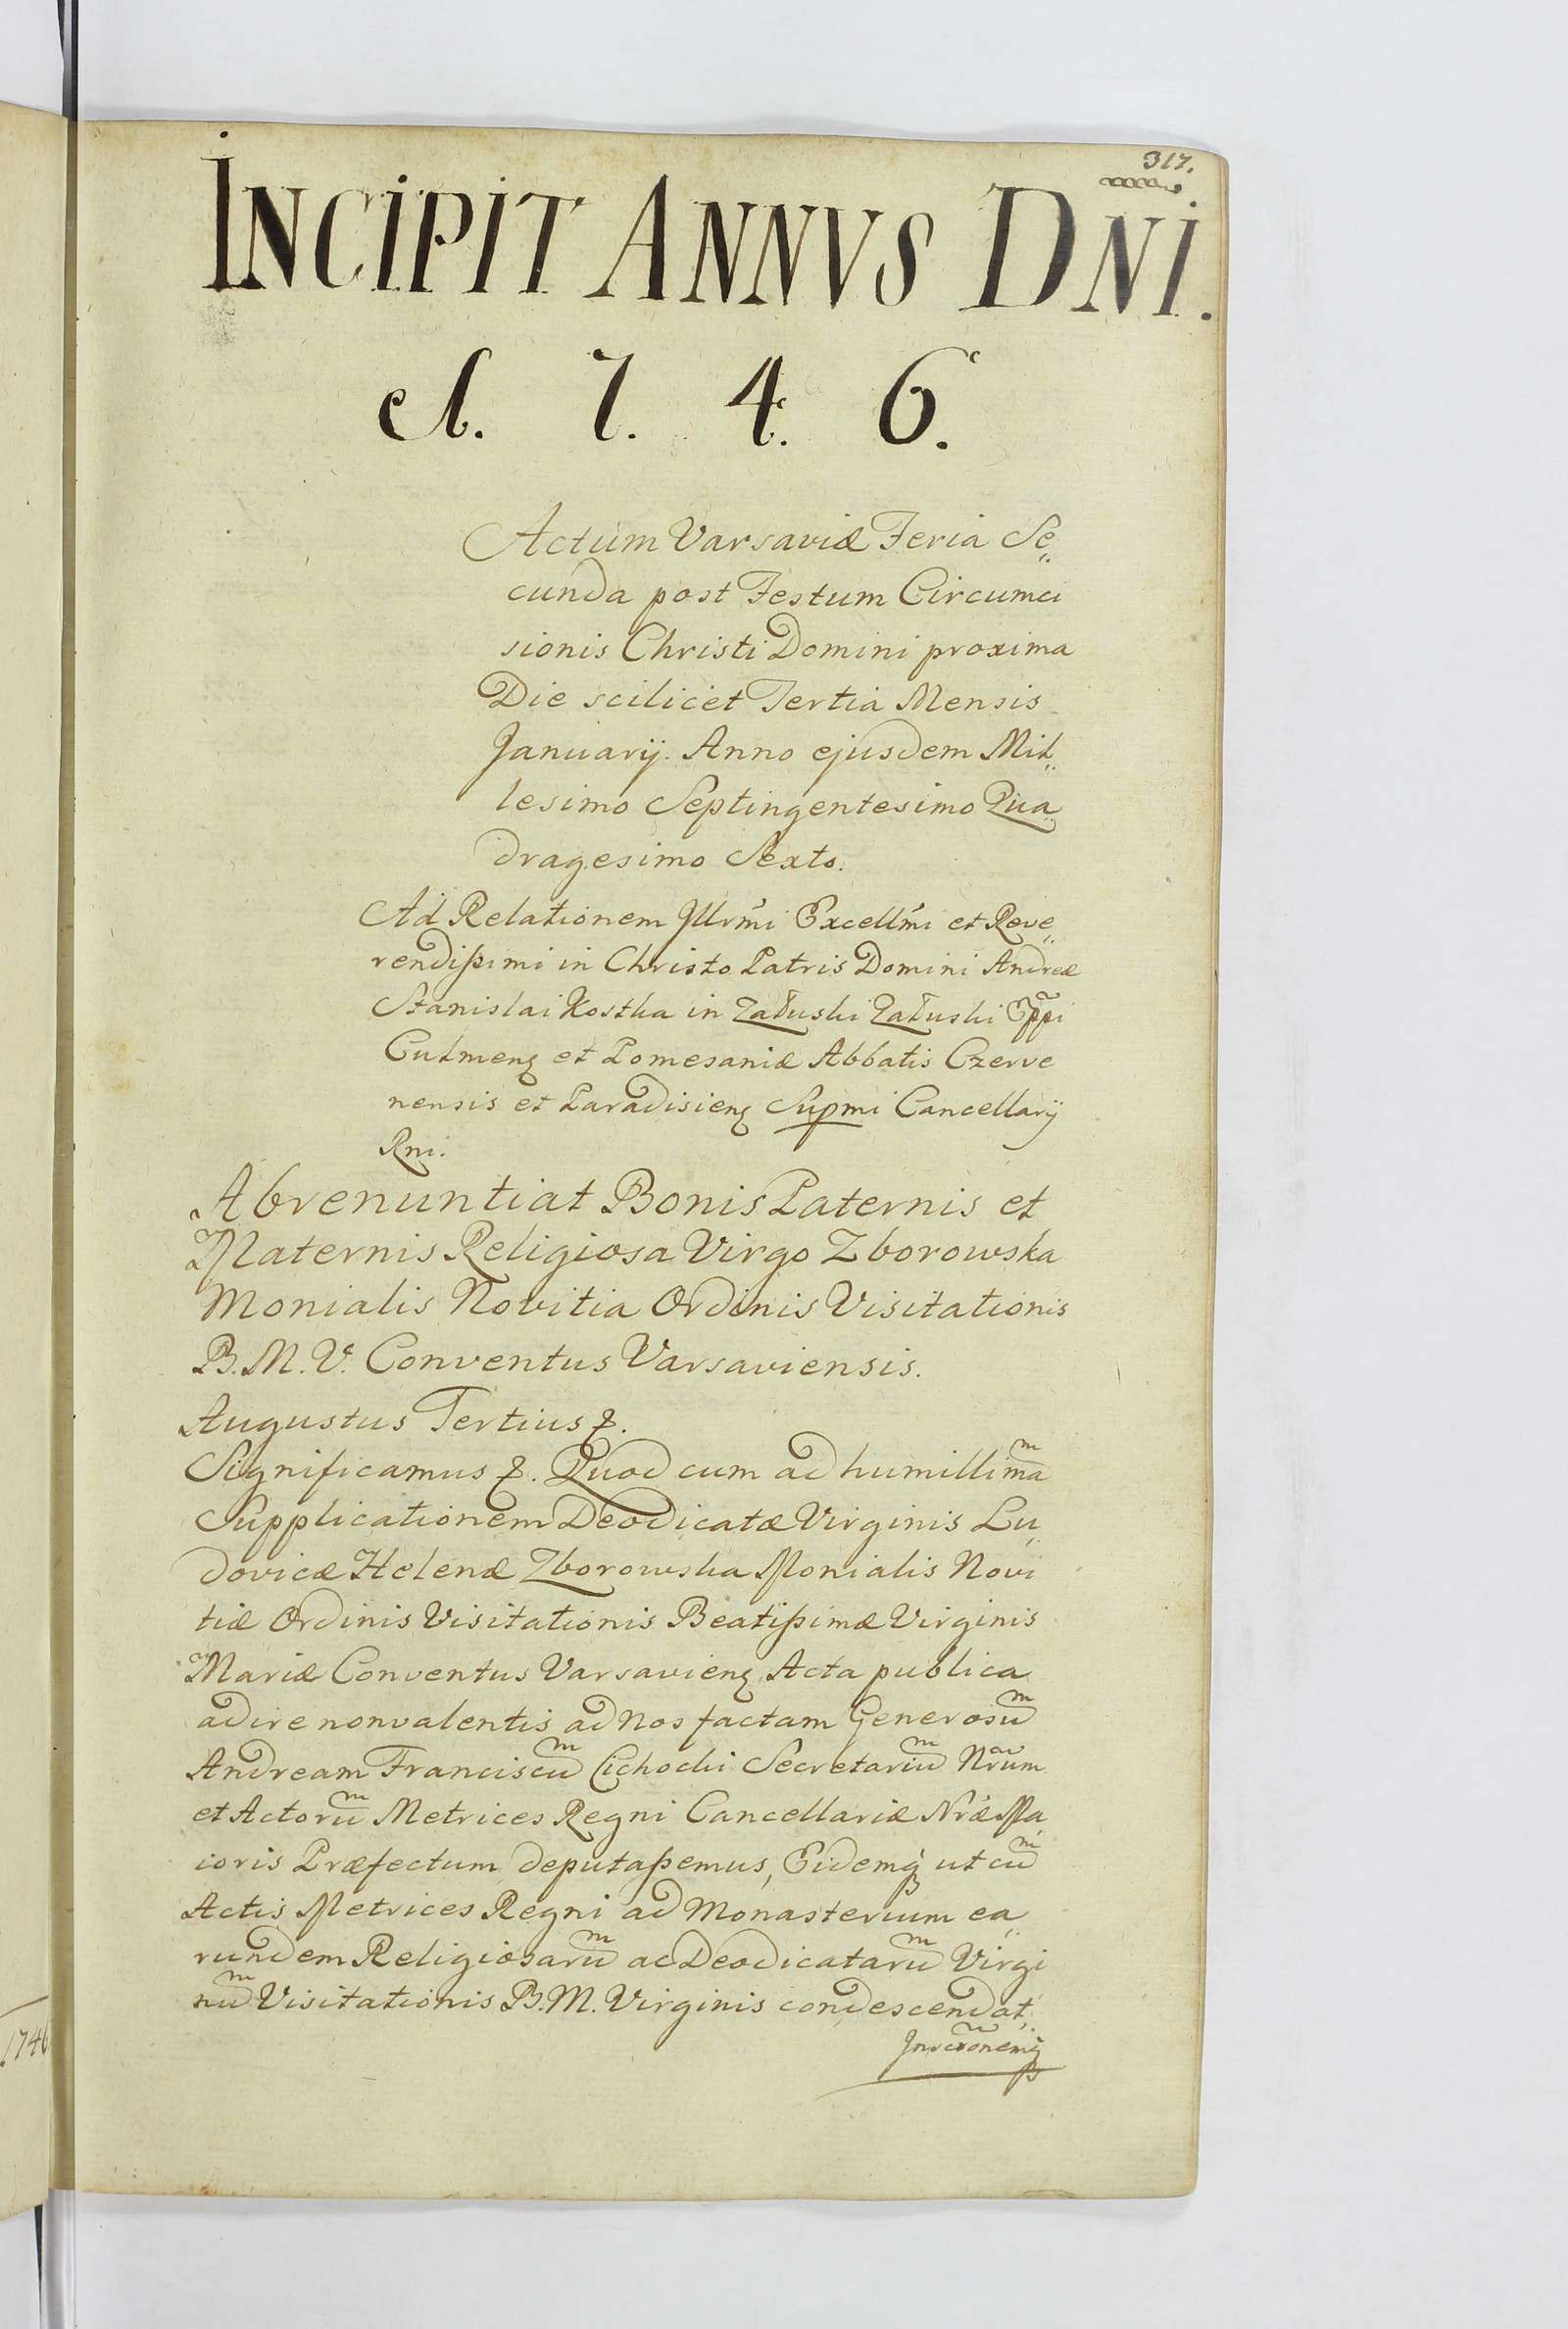 317.
INCIPIT ANNVS DNI.
1. 7. 4. 6.
Actum Varsaviæ Feria Se„
cunda post Festum Circumci
sionis Christi Domini proxima
Die scilicet Tertia Mensis
Januarij. Anno ejusdem Mil„
lesimo Septingentesimo Qua„
dragesimo Sexto.
Ad Relationem Jllrm̃i Excellm̃i et Reve„
rendißimi in Christo Patris Domini Andreæ
Stanislai Kostka in Załuski Załuski Ep̃pi
Culmenꝫ et Pomesaniæ Abbatis Czerve
nensis et Paradisienꝫ Supmi Cancellarij
Rni.
Abrenuntiat Bonis Paternis et
Maternis Religiosa Virgo Zborowska
Monialis Novitia Ordinis Visitationis
B. M. V. Conventus Varsaviensis.
Augustus Tertius ꝛ.
Significamus ꝛ. Quod cum ad humillimam
Supplicationem Deodicatæ Virginis Lu„
dovicæ Helenæ Zborowska Monialis Novi
tiæ Ordinis Visitationis Beatißimæ Virginis
Mariæ Conventus Varsavienꝫ Acta publica
adire nonvalentis ad Nos factam Generosum
Andream Franciscum Cichocki Secretarium Nr̃um
et Actorum Metrices Regni Cancellariæ Nræ Ma„
ioris Præfectum deputaßemus, Eidemqꝫ ut cum
Actis Metrices Regni ad Monasterium ea„
rundem Religiosarum ac Deodicatarum Virgi
num Visitationis B. M. Virginis condescendat,
Inscr̃onemqꝫ
1746